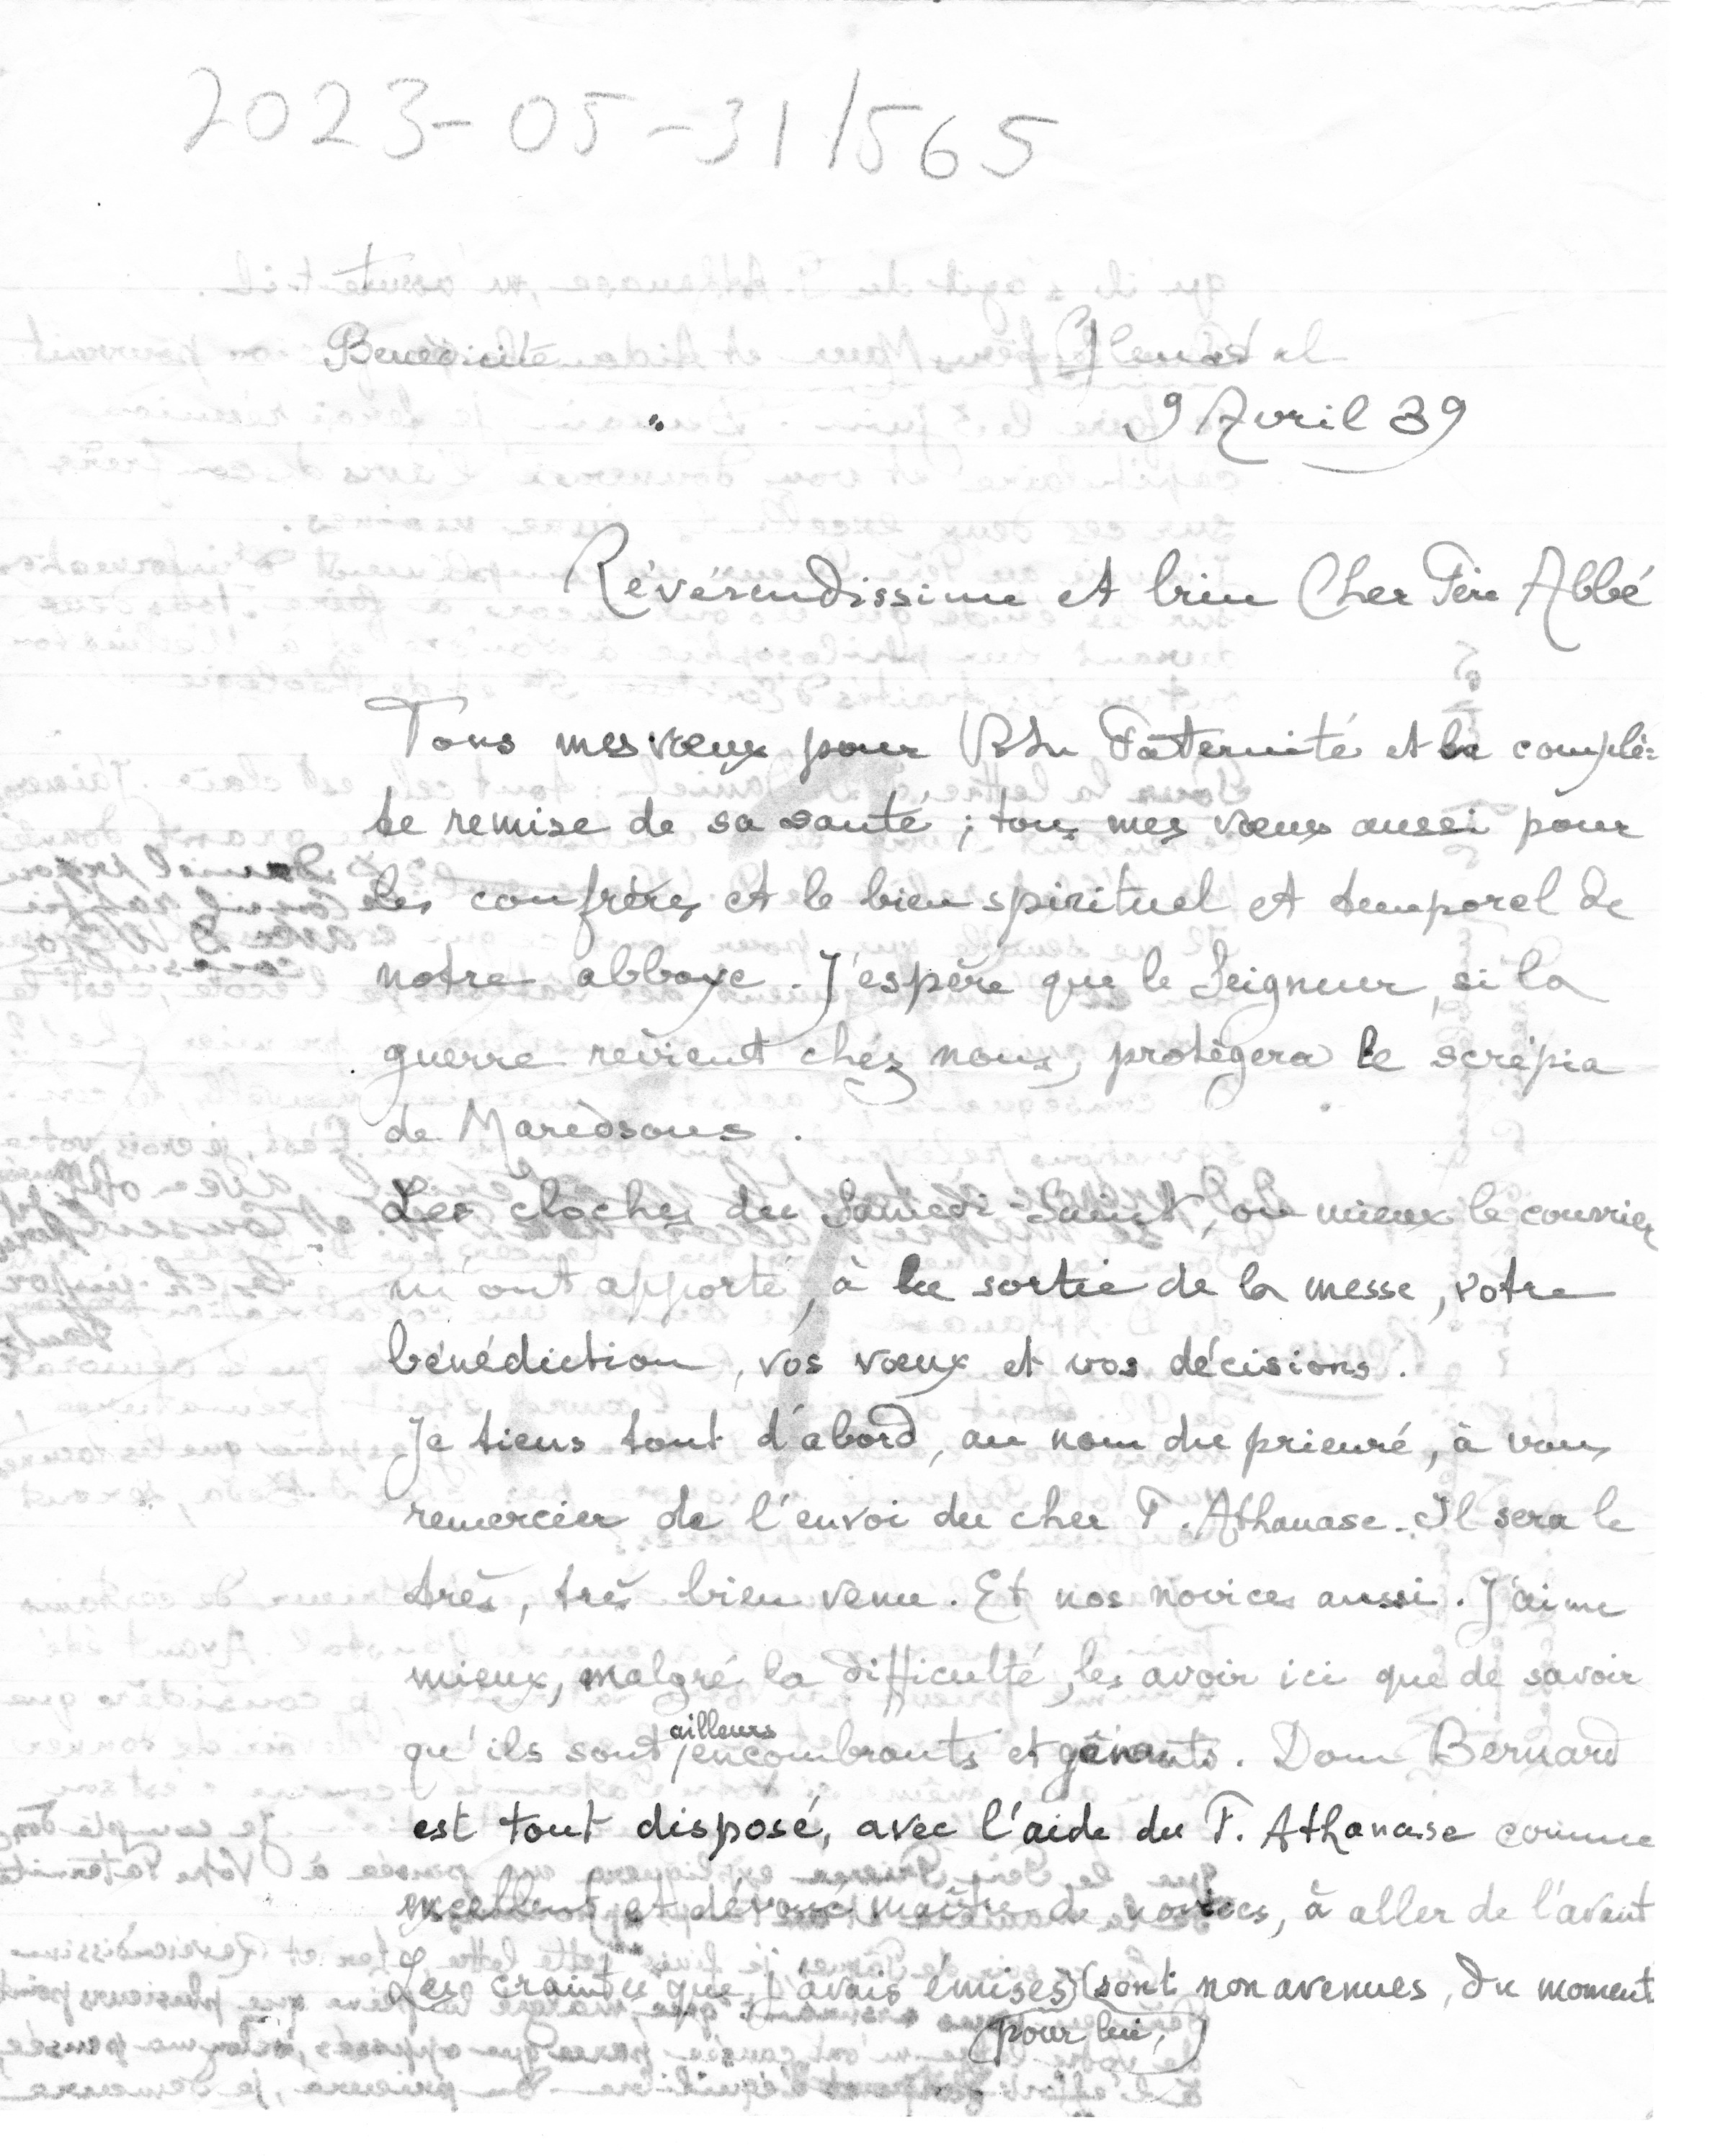 2023-05-31/565
Benedicite Glenstal
9 Avril 39
Révérendissime et bien Cher Père Abbé
Tous mes vœux pour Paternité et la complè-
te remise de sa santé ; tous mes vœux aussi pour
les confrères et le bien spirituel et temporel de
notre abbaye. J'espère que le Seigneur, si la
guerre revient chez nous, protègera le
de Maredsous.
Les cloches du Samedi-Saint, ou mieux le courrier
m'ont apporté, à la sortie de la messe, votre
bénédiction, vos vœux et vos décisions.
Je tiens tout d'abord, au nom du prieuré, à vous
remercier de l'envoi du cher F. Athanase. Il sera le
très, très bien venu. Et nos novices aussi. J'aime
mieux, malgré la difficulté, les avoir ici que de savoir
ailleurs
qu'ils sont encombrants et gênants. Dom Bernard
est tout disposé, avec l'aide du F. Athanase comme
excellent et dévoué maître de novices, à aller de l'avant
Les craintes que j'avais émises (sont non avenues, du moment
pour lui,)